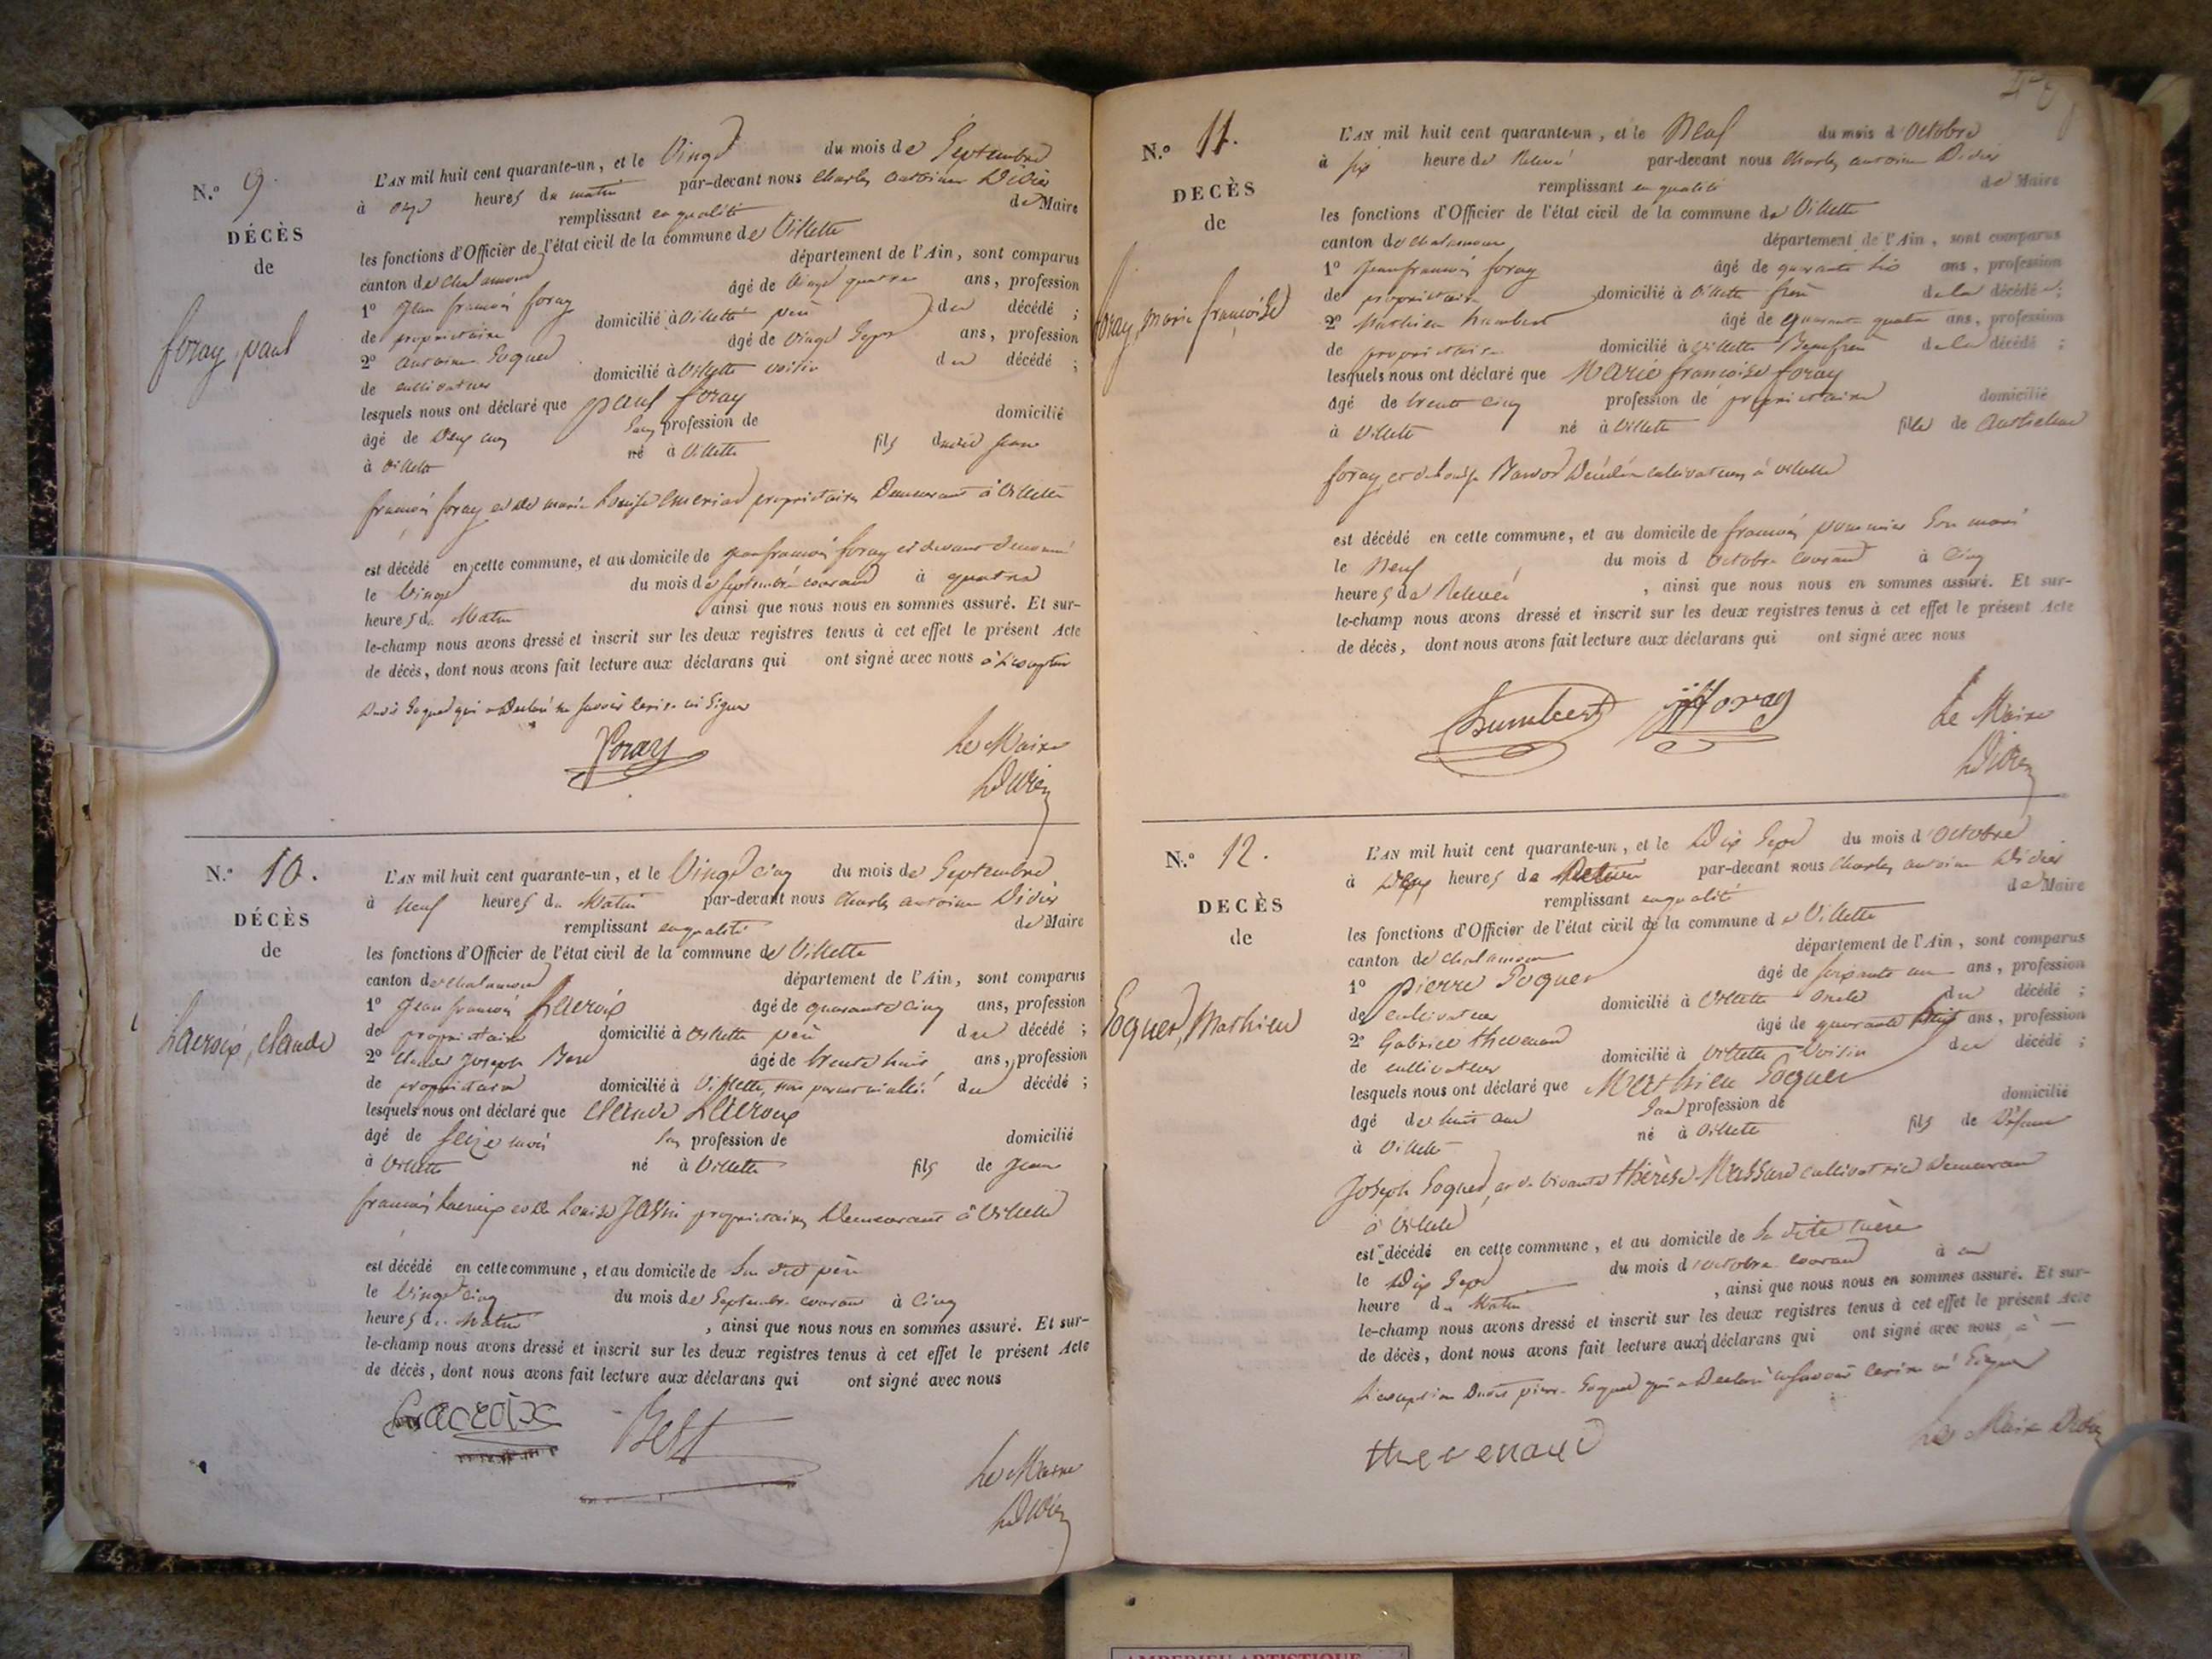 N.o 9.
DÉCÈS
de
foray, paul
L'AN mil huit cent quarante-un, et le Vingt du mois de Septembre
à onze heures du matin par-devant nous Charles antoine Didier
remplissant en qualité de Maire
les fonctions d'Officier de l'état civil de la commune de Villette
canton de chalamont département de l'Ain, sont comparus
1o Jean françois foray âgé de Vingt quatre ans, profession
de propriétaire domicilié à Villette père du décédé ;
2o antoine Soquet âgé de Vingt Sept ans, profession
de cultivateur domicilié à Villette voisin du décédé ;
lesquels nous ont déclaré que paul foray
âgé de Deux ans Sans profession de domicilié
à Villette né à Villette fils dudit Jean
françois foray et de marie Louise propriétaires Demeurant à Villette
est décédé en cette commune, et au domicile de Jean françois foray ci devant denommé
le Vingt du mois de Septembre courant à quatre
heures du Matin ainsi que nous nous en sommes assuré. Et sur-
le-champ nous avons dressé et inscrit sur les deux registres tenus à cet effet le présent Acte
de décès, dont nous avons fait lecture aux déclarans qui ont signé avec nous à L'exception
Dudit Soquet qui a Declaré ne Savoir Ecrire ni Signer
foray
Le Maire
Didier
N.o 10.
DÉCÈS
de
Lacroix, claude
L'AN mil huit cent quarante-un, et le Vingt cinq du mois de Septembre
à neuf heures du Matin par-devant nous Charles antoine Didier
remplissant en qualité de Maire
les fonctions d'Officier de l'état civil de la commune de Villette
canton de chalamont département de l'Ain, sont comparus
1o Jean françois Lacroix âgé de quarante cinq ans, profession
de propriétaire domicilié à Villette père du décédé ;
2o claude Joseph Best âgé de trente huit ans, profession
de propriétaire domicilié à Villette, non parent ni allié du décédé ;
lesquels nous ont déclaré que claude Lacroix
âgé de Seize mois Sans profession de domicilié
à Villette né à Villette fils de Jean
françois Lacroix et de Louise propriétaires Demeurant à Villette
est décédé en cette commune, et au domicile de Son dit père
le Vingt cinq du mois de Septembre courant à Cinq
heures du Matin, ainsi que nous nous en sommes assuré. Et sur-
le-champ nous avons dressé et inscrit sur les deux registres tenus à cet effet le présent Acte
de décès, dont nous avons fait lecture aux déclarans qui ont signé avec nous
Lacroix Best
Le Maire
Didier
N.o 11.
DECÈS
de
foray, marie françoise
L'AN mil huit cent quarante-un, et le Neuf du mois d'Octobre
à Six heure de Relevé par-devant nous Charles antoine Didier
remplissant en qualité de Maire
les fonctions d'Officier de l'état civil de la commune de Villette
canton de chalamont département de l'Ain, sont comparus
1o Jean françois foray âgé de quarante ans, profession
de propriétaire domicilié à Villette frère de la décédée ;
2o Mathieu humbert âgé de quarante quatre ans, profession
de propriétaire domicilié à Villette Beaufrère de la décédé ;
lesquels nous ont déclaré que Marie françoise foray
âgé de trente cinq profession de propriétaire domicilié
à Villette né à Villette fille de
foray et de Louise Décédés cultivateurs à Villette
est décédé en cette commune, et au domicile de françois pommier Son mari
le Neuf du mois d octobre courant à Cinq
heures de Relevé, ainsi que nous nous en sommes assuré. Et sur-
le-champ nous avons dressé et inscrit sur les deux registres tenus à cet effet le présent Acte
de décès, dont nous avons fait lecture aux déclarans qui ont signé avec nous
humbert jffforay
Le Maire
Didier
N.o 12.
DECÈS
de
Soquet, Mathieu
L'AN mil huit cent quarante-un, et le Dix Sept du mois d'Octobre
à heures de par-devant nous Charles antoine Didier
remplissant en qualité de Maire
les fonctions d'Officier de l'état civil de la commune de Villette
canton de chalamont département de l'Ain, sont comparus
1o pierre Soquet âgé de Soixante un ans, profession
de cultivateur domicilié à Villette oncle du décédé ;
2o Gabriel thevenand âgé de quarante ans, profession
de cultivateur domicilié à Villette Voisin du décédé ;
lesquels nous ont déclaré que Mathieu Soquet
âgé de huit ans Sans profession de domicilié
à Villette né à Villette fils de Défunt
Joseph Soquet, et de vivante thérèse Massard cultivatrice Demeurant
à Villette
est décédé en cette commune, et au domicile de Sa dite mère
le Dix Sept du mois d'octobre courant à un
heure du Matin, ainsi que nous nous en sommes assuré. Et sur-
le-champ nous avons dressé et inscrit sur les deux registres tenus à cet effet le présent Acte
de décès, dont nous avons fait lecture aux déclarans qui ont signé avec nous à
L'exception Dudit pierre Soquet qui a Declaré ne Savoir Ecrire ni Signer
thevenand
Le Maire Didier
AMBERIEU ARTISTIQUE